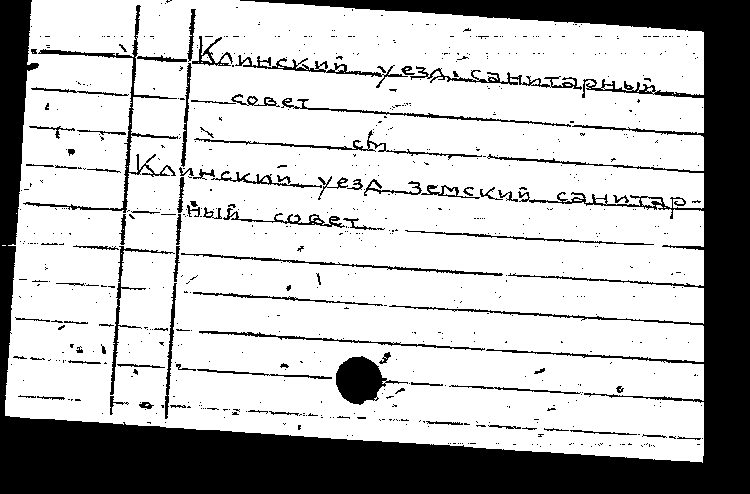 Клинский уезд, санитарный
совет
см
Клинский уезд земский санитар-
ный совет